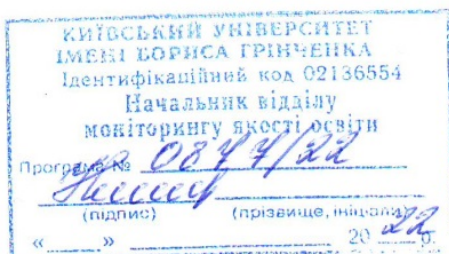 КИЇВСЬКИЙ УНІВЕРСИТЕТ
ІМЕНІ БОРИСА ГРІНЧЕНКА
Ідентифікаційний код 02136554
Начальник відділу
моніторингу якості освіти
Програма № 0877/22
(підпис) (прізвище, ініціали)
« » 20 22 р.